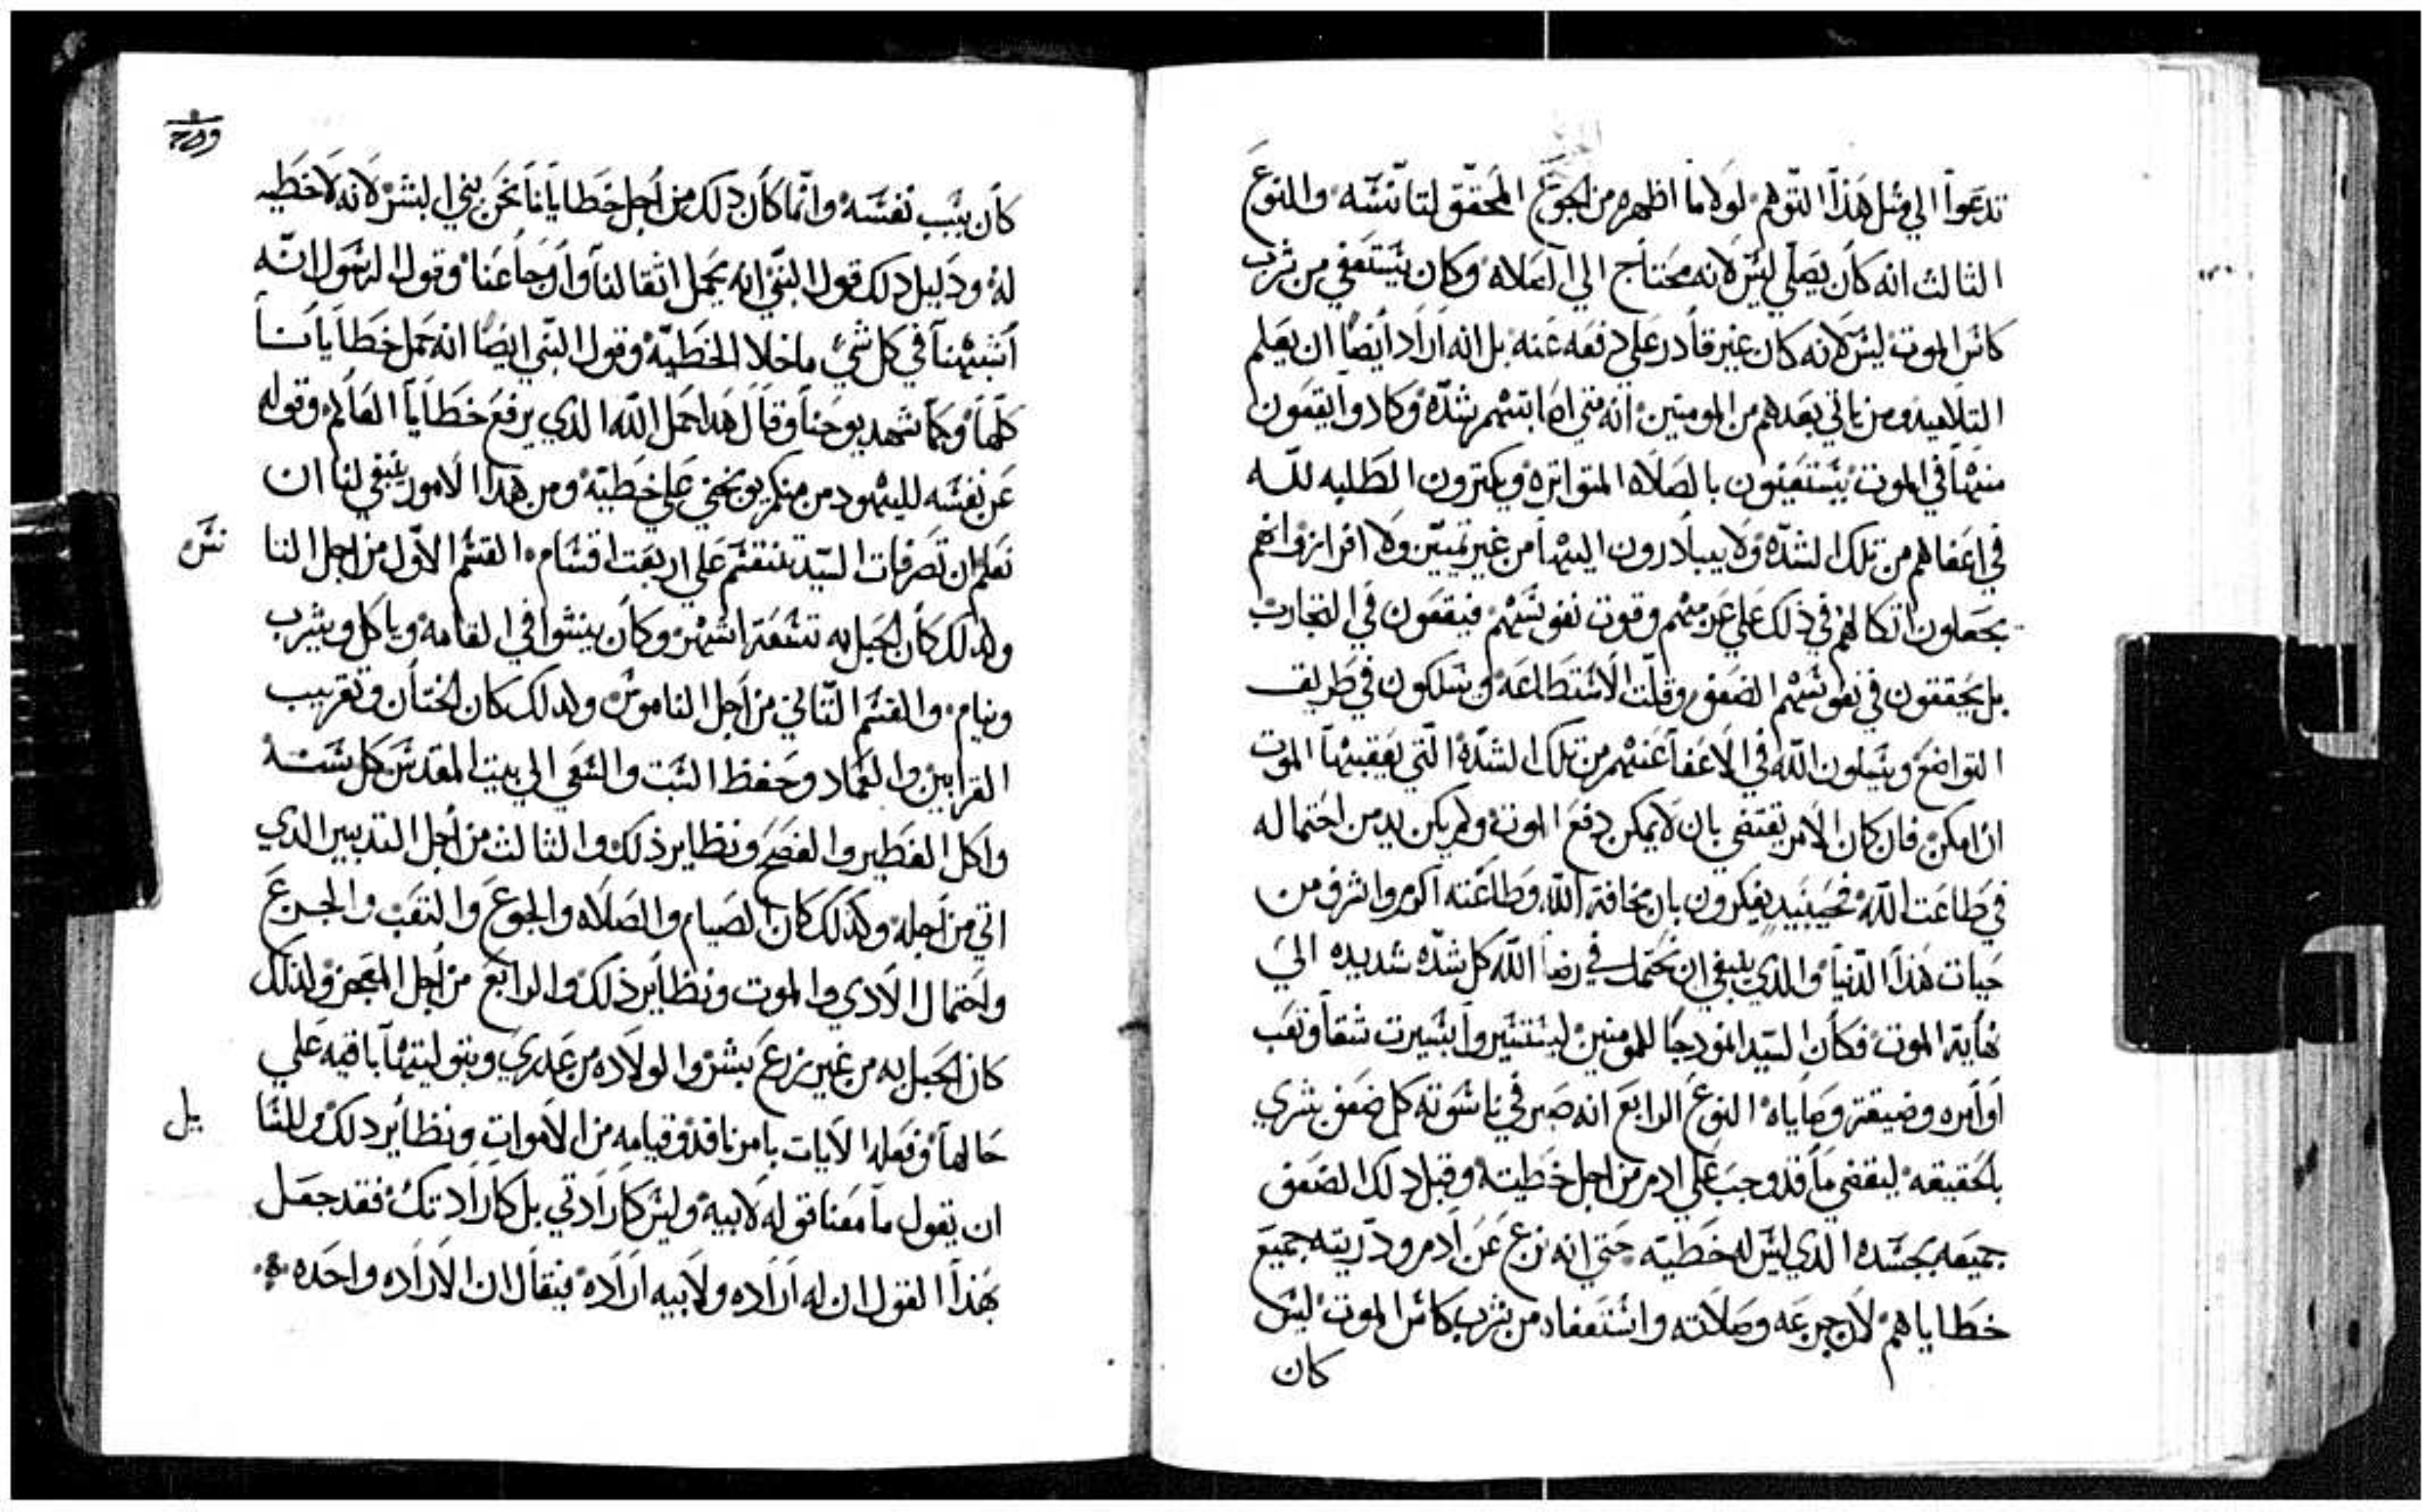 تدعوا الي مثل هذا التوهم لولا ما اظهره من الجوع المحقق لتانسه والنوع
الثالث انه كان يصلي ليس لانه محتاج الي الصلاه وكان يستعفي من شرب
كاس الموت ليس لانه كان غير قادر علي دفعه عنه بل انه اراد ايضا ان يعلم
التلاميد ومن ياتي بعدهم من المومنين انه متي اصابتهم شده وكادوا يقعون
منها في الموت يستعينون بالصلاه المتواتره ويكترون الطلبه لله
في اعفاهم من تلك الشده ولا يبادرون اليها من غير تمييز ولا افراز وانهم
يجعلون اتكالهم في ذلك علي عزمهم وقوت نفوسهم فيقعون في التجارب
بل يحققون في نفوسهم الضعف وقلت الاستطاعه ويسلكون في طريق
التواضع ويسلون الله في الاعفا عنهم من تلك الشده التي يعقبها الموت
ان امكن فان كان الامر يقتضي بان لا يمكن دفع الموت ولم يكن بد من احتماله
في طاعت الله فحينيد يفكرون بان مخافة الله وطاعته اكرم واشرف من
حيات هذا الدنيا والدي ينبغي ان نحتمل في رضا الله كل شده شديده الي
نهاية الموت فكان السيد انمودجا للمومنين ليستسيروا بسيرت شقا وتعب
اوامره وضيقة وصاياه النوع الرابع انه صبر في ناسوته كل ضعف بشري
بالحقيقه ليقضي ما قد وجب علي ادم من اجل خطيته وقبل دلك الضعف
جميعه بجسده الدي ليس له خطيه حتي انه نزع عن ادم ودريته جميع
خطاياهم لان جزعه وصلاته واستعفاه من شرب كاس الموت ليس
كان
كان بسبب نفسه وانما كان دلك من اجل خطايانا نحن بني البشر لانه لا خطيه
له ودليل دلك قول النبي انه يحمل اتقالنا واوجاعنا وقول الرسول انه
اشبهنا في كل شي ما خلا الخطيه وقول النبي ايضا انه حمل خطايانا
كلها وكما شهد يوحنا وقال هدا حمل الله الدي يرفع خطايا العالم وقوله
عن نفسه لليهود من منكم يوبخني علي خطيه ومن هدا الامور ينبغي لنا ان
نعلم ان تصرفات السيد تنقسم علي اربعت اقسام القسم الاول من اجل الناس
ولدلك كان الحبل به تسعة اشهر وكان ينشوا في القامه وياكل ويشرب
وينام والقسم التاني من اجل الناموس ولدلك كان الختان وتقريب
القرابين والعماد وحفظ السبت والسعي الي بيت المقدس كل سنه
واكل الفطير والفصح ونظاير ذلك والثالث من اجل التدبير الدي
اتي من اجله وكذلك كان الصيام والصلاه والجوع والتعب والجزع
واحتمال الادي والموت ونظاير ذلك والرابع من اجل المعجز ولذلك
كان الحبل به من غير زرع بشر والولاده من عدري وبتوليتها باقيه علي
حالها وفعله الايات بامر نافد وقيامه من الاموات ونظاير دلك وللسايل
ان يقول ما معنا قوله لابيه وليس كارادتي بل كارادتك فقد جعل
بهذا القول ان له اراده ولابيه اراده فيقال ان الاراده واحده